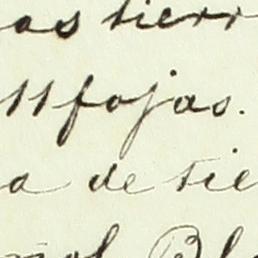 as tierr
11 fojas.
a de tie